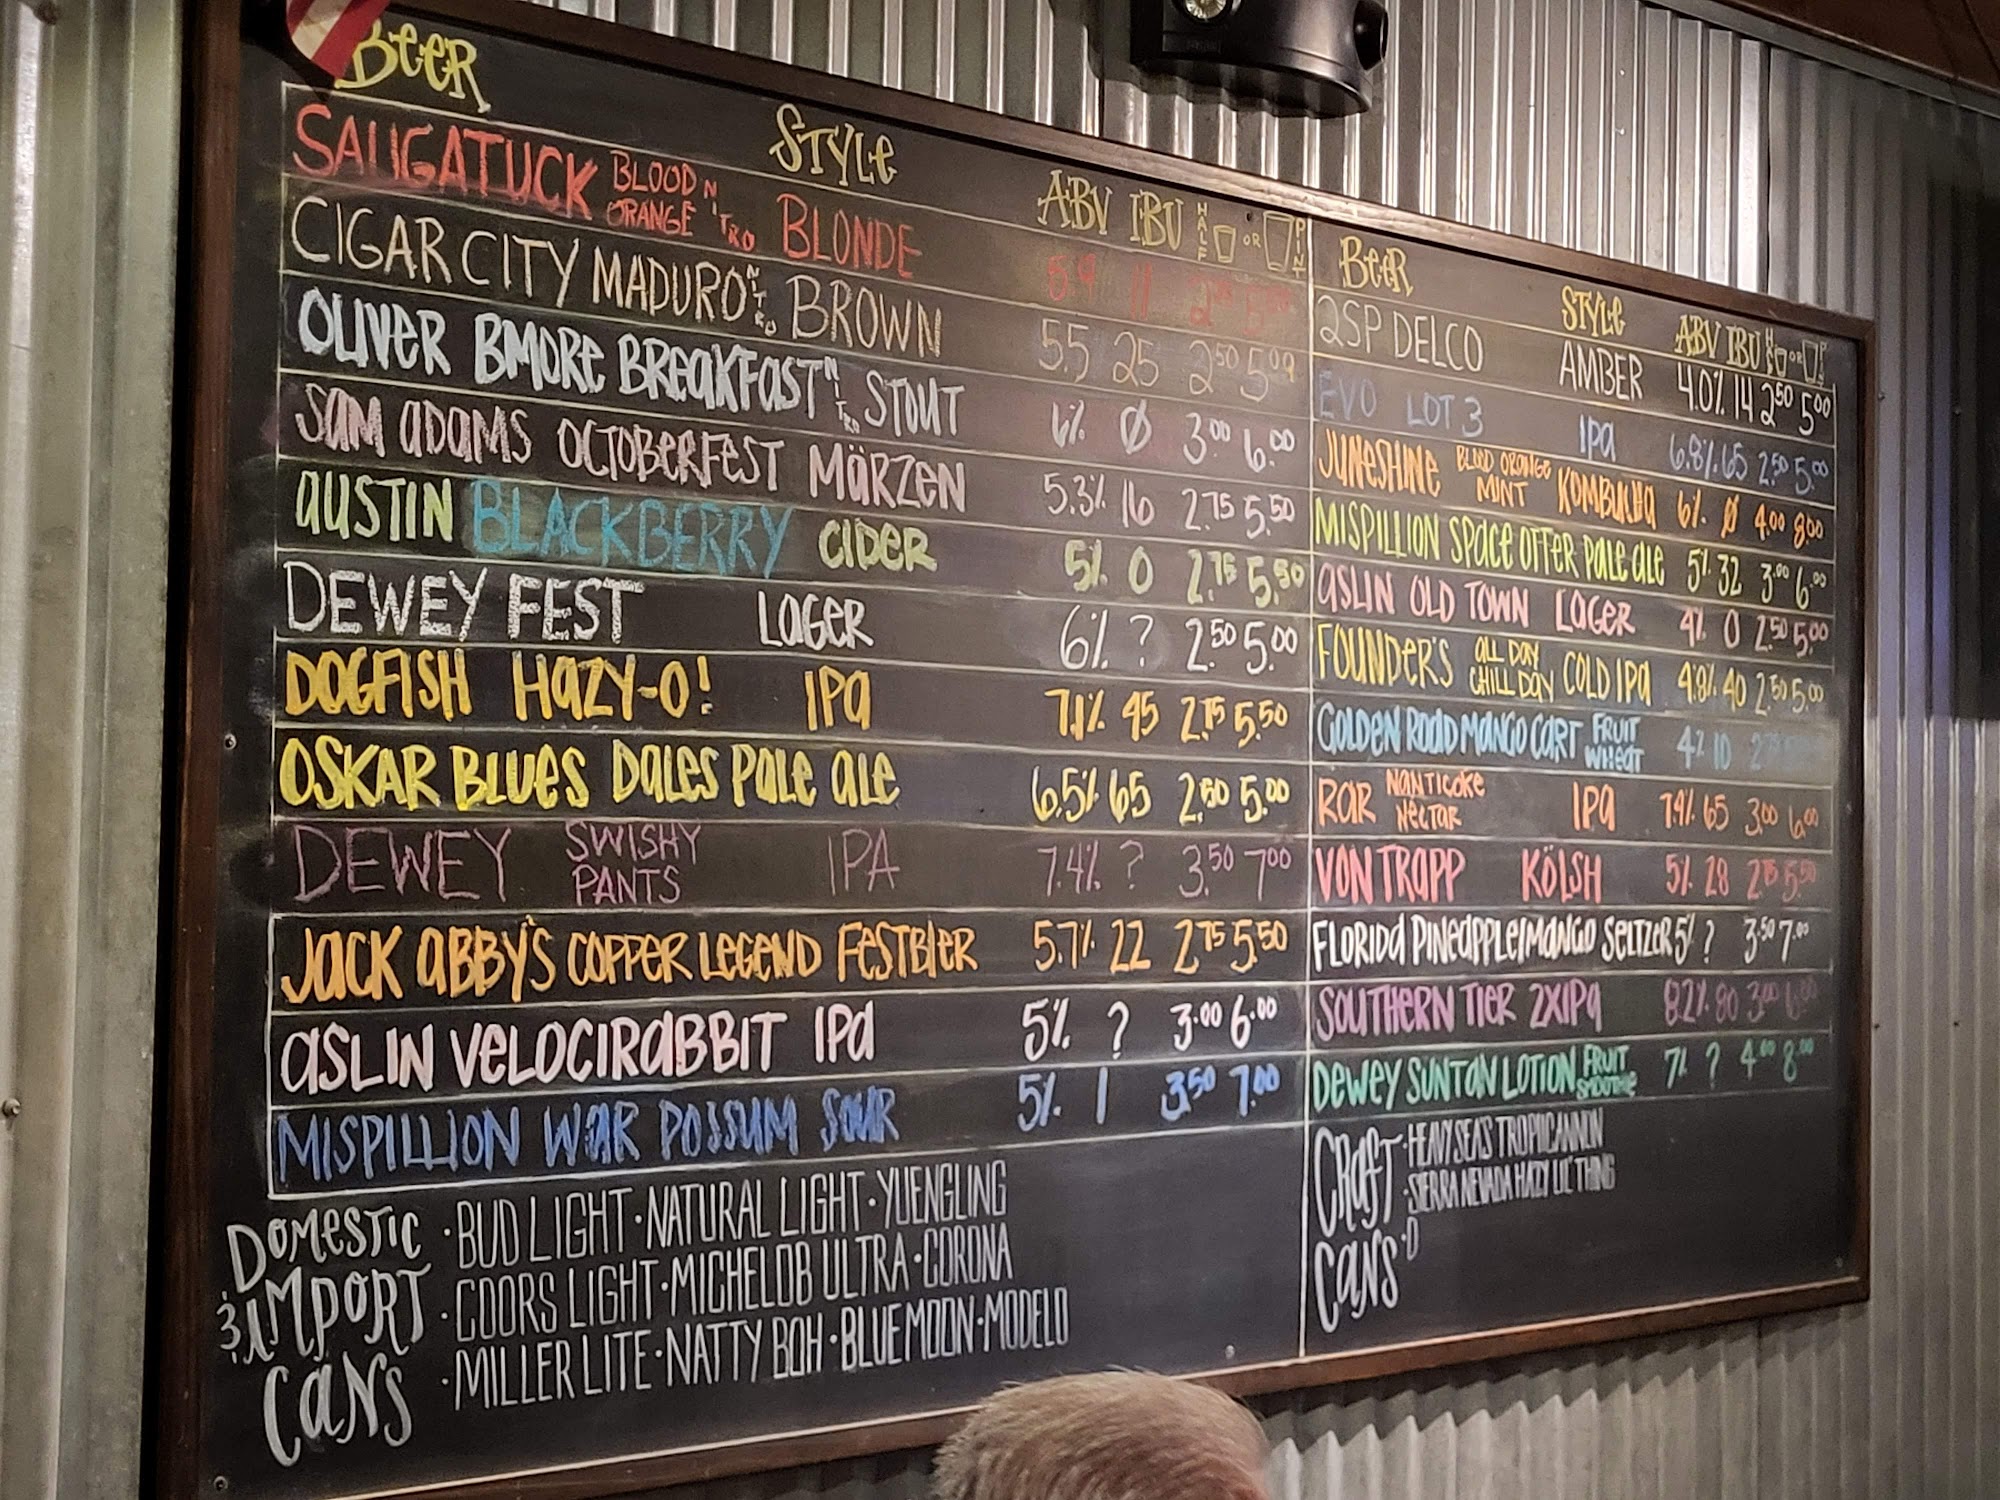 Beer STYLE ABV IBU HALF OR PINT
SAUGATUCK BLOOD ORANGE NITRO BLONDE 5.9 11
CIGAR CITY MADURO NITRO BROWN 5.5 25 2.50 5.00
OLIVER BMORE BREAKFAST NITRO STOUT 6% Ø 3.00 6.00
SAM ADAMS OCTOBERFEST MÄRZEN 5.3% 16 2.75 5.50
AUSTIN BLACKBERRY CIDER 5% 0 2.75 5.50
DEWEY FEST LAGER 6% ? 2.50 5.00
DOGFISH HAZY-O! IPA 7.1% 45 2.75 5.50
OSKAR BLUES DALES PALE ALE 6.5% 65 2.50 5.00
DEWEY SWISHY PANTS IPA 7.4% ? 3.50 7.00
JACK ABBY'S COPPER LEGEND FESTBIER 5.7% 22 2.75 5.50
ASLIN VELOCIRABBIT IPA 5% ? 3.00 6.00
MISPILLION WAR POSSUM SOUR 5% 1 3.50 7.00
DOMESTIC & IMPORT CANS
·BUD LIGHT·NATURAL LIGHT·YUENGLING
·COORS LIGHT·MICHELOB ULTRA·CORONA
·MILLER LITE·NATTY BOH·BLUE MOON·MODELO
Beer STYLE ABV IBU OR
2SP DELCO AMBER 4.0% 14 2.50 5.00
EVO LOT 3 IPA 6.8% 65 2.50 5.00
JUNESHINE BLOOD ORANGE MINT KOMBUCHA 6% Ø 4.00 8.00
MISPILLION SPACE OTTER PALE ALE 5% 32 3.00 6.00
ASLIN OLD TOWN LAGER 4% 0 2.50 5.00
FOUNDER'S ALL DAY CHILL DAY COLD IPA 4.8% 40 2.50 5.00
GOLDEN ROAD MANGO CART FRUIT WHEAT 4% 10
RAR NANTICOKE NECTAR IPA 7.4% 65 3.00 6.00
VON TRAPP KÖLSH 5% 28 2.75 5.50
FLORIDA PINEAPPLE/MANGO SELTZER 5% ? 3.50 7.00
SOUTHERN TIER 2XIPA 8.2% 80 3.00 6.00
DEWEY SUNTAN LOTION FRUIT SMOOTHIE 7% ? 4.00 8.00
CRAFT CANS
·HEAVY SEAS TROPICANNON
·SIERRA NEVADA HAZY LIL' THING
·D